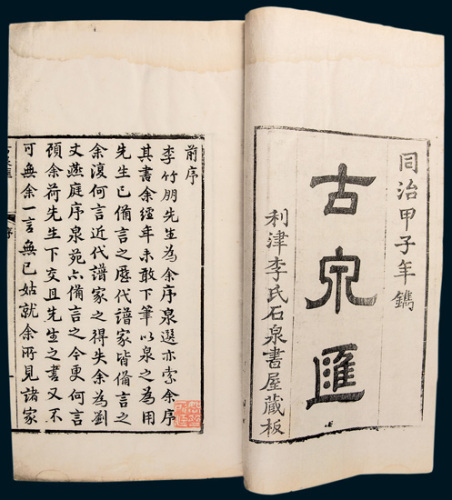 同治甲子年鐫
古泉匯
利津李氏石泉書屋藏板
前序
李竹朋先生為余序泉選亦索余序
其書余經年未敢下筆以泉之為用
先生已備言之歷代譜家皆備言之
余復何言近代譜家之得失余為劉
丈燕庭序泉苑亦備言之今更何言
顧余荷先生下交且先生之書又不
可無余一言無已姑就余所見諸家